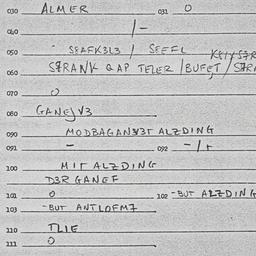 030 ALMER 031 0
040 1-
050 SEAFK3L3 / SEEFL
060 STRANK GAP TELER / BUFET /
070 0
080 GANEJV3
090 MODBAGANV3T ALZDING
091 - 092 -/+
100 MIT ALZDING
D3R GANEF
101 0 102 -BUT ALZDING
103 -BUT ANTLOFM7
110 TLIE
111 0